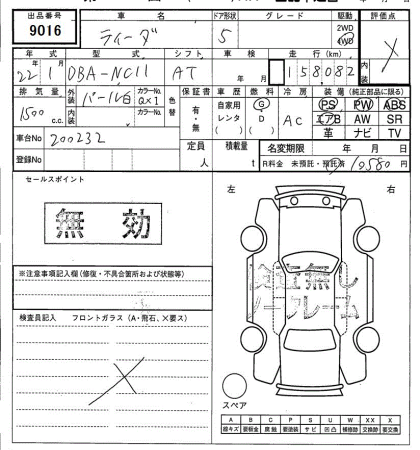 出品番号 車名 ドア形状 グレード 駆動 評価点
9016 ティーダ 5 2WD 4WD X
年式 型式 シフト 車検 走行(km) 内装
22年 1月 DBA-NC11 AT 年 月 158,082
排気量 外装 パール白 カラーNo. QX1 色替 保証書 車歴 燃料 冷房 装備(純正部品に限る)
1500 c.c. 内装 カラーNo. 有・無 自家用 G AC PS PW ABS
レンタ D エアB AW SR
革 ナビ TV
車台No 200232 定員 人 積載量 t 名変期限 年 月 日
登録No R料金 未預託・預託済 10580 円
セールスポイント 左 右
無効
※注意事項記入欄(修復・不具合箇所および状態等)
検査無し
ノークレーム
検査員記入 フロントガラス(A・飛石、X要ス)
X
スペア
A B C P S U W XX X
線キズ 要板金 腐蝕 要塗装 サビ 凹凸 補修跡 交換跡 要交換